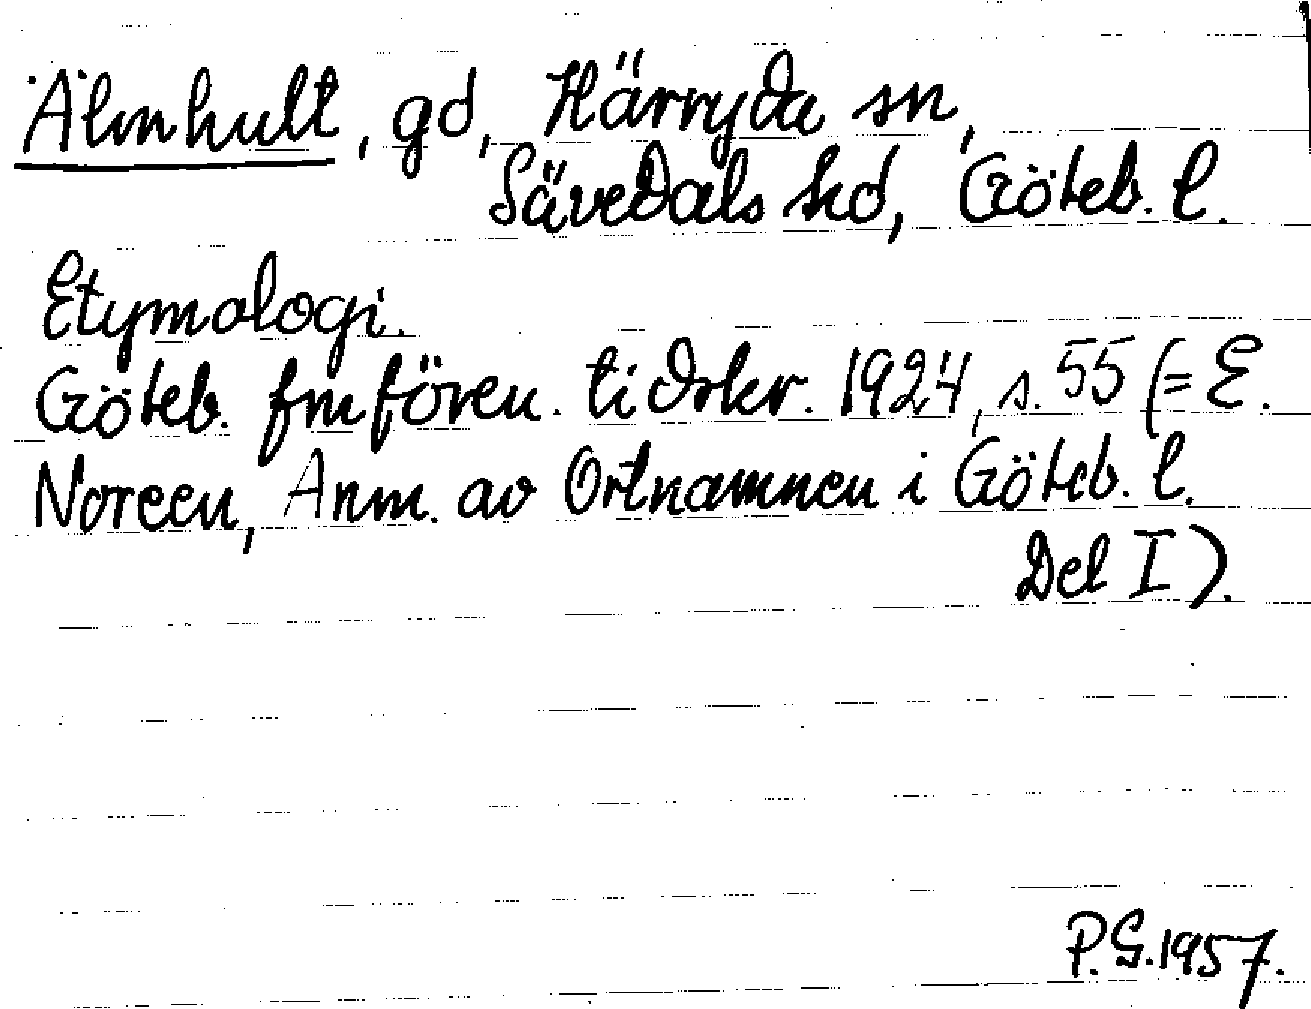 Älmhult, gd, Härryda sn,
Sävedals hd, Göteb. l.
Etymologi.
Göteb. fmfören. tidskr. 1924, s. 55 (= E.
Noreen, Anm. av Ortnamnen i Göteb. l.
Del I).
P.G. 1957.